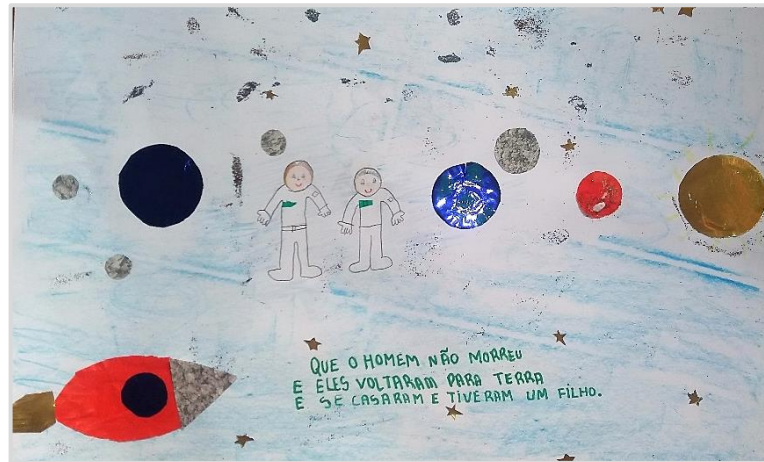 QUE O HOMEM NÃO MORREU
E ELES VOLTARAM PARA TERRA
E SE CASARAM E TIVERAM UM FILHO.